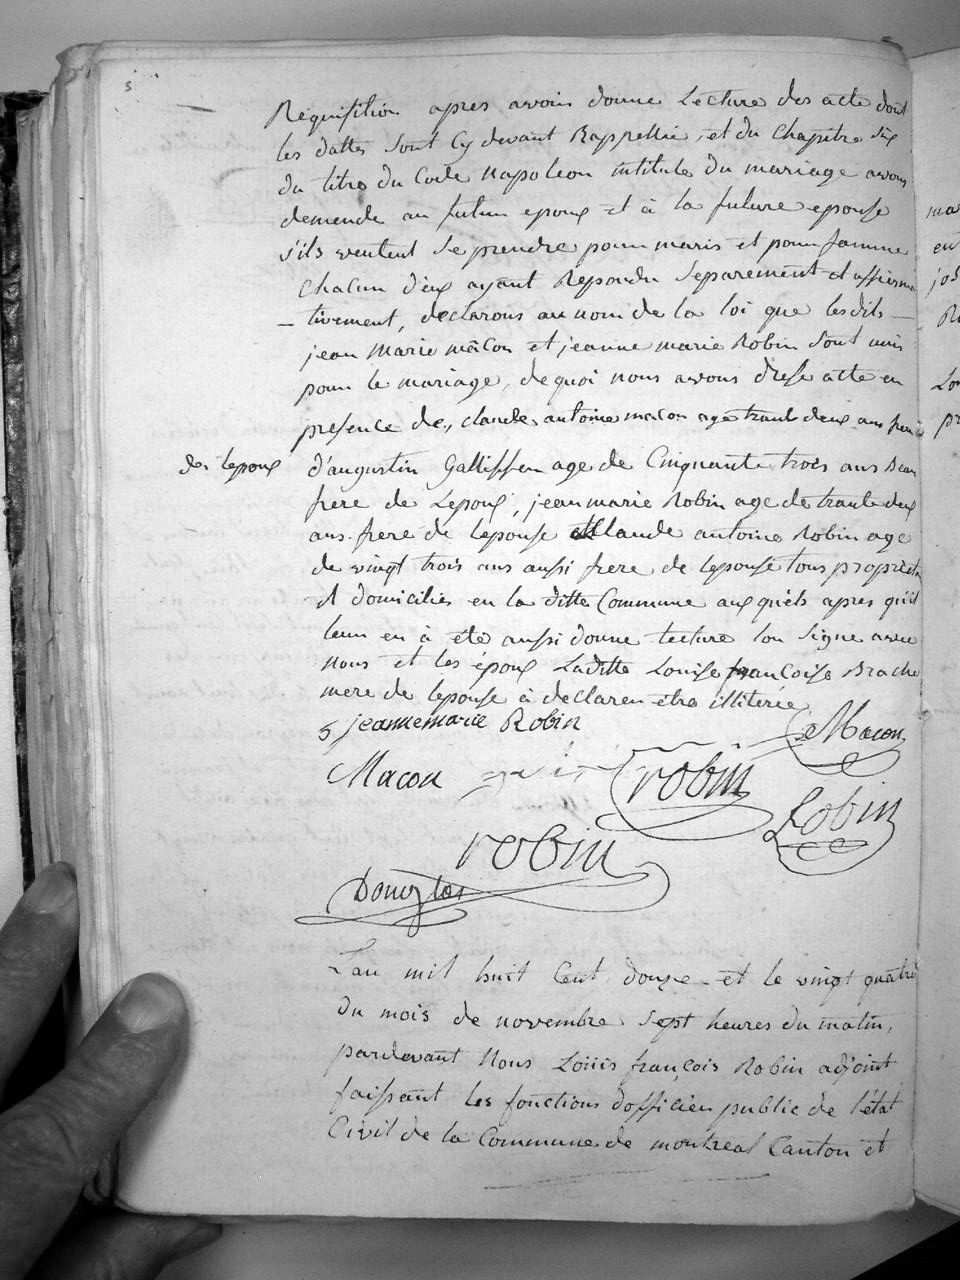 Requisition apres avoir donne Lecture des acte dont
les dattes sont Cy devant Rappellie, et du Chapitre Six
du titre du Code Napoleon intitule du mariage avons
demende au futur epoux et à la future epouse
s'ils veulent se prendre pour maris et pour famme
Chacun d'eux ayant Repondu Separement et affirma
– tivement, declarons au nom de la loi que lesdits –
jean Marie mâcon et jeanne marie Robin Sont unis
pour le mariage, de quoi nous avons dresse atte en
presence de, claude antoine macon age trante deux ans frere
de lepoux
d'augustin Galliffen age de Cinquante trois ans Beau
frere de Lepoux, jean marie Robin age de trante deux
ans frere de lepouse Claude antoine Robin age
de vingt trois ans aussi frere de lepouse tous propriet
et domicilies en la ditte Commune auxquels apres qu'il
leur en à ete aussi donne lecture lon Signe avec
Nous et les époux Laditte Louise francoise Brache
mere de lepouse à declaren etre illiterée
jeannemarie Robin
Macon
Macon
robin
Robin
robin
Douglas
L'an mil huit Cent douze et le vingt quatre
du mois de novembre Sept heures du matin,
pardevant Nous Louis françois Robin adjoint
faissant les fonctions dofficien public de l'état
Civil de la Commune de montreal Canton et